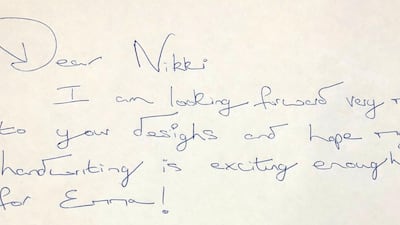 Dear Nikki
I am looking forward very
to your designs and hope my
handwriting is exciting enough
for Emma!